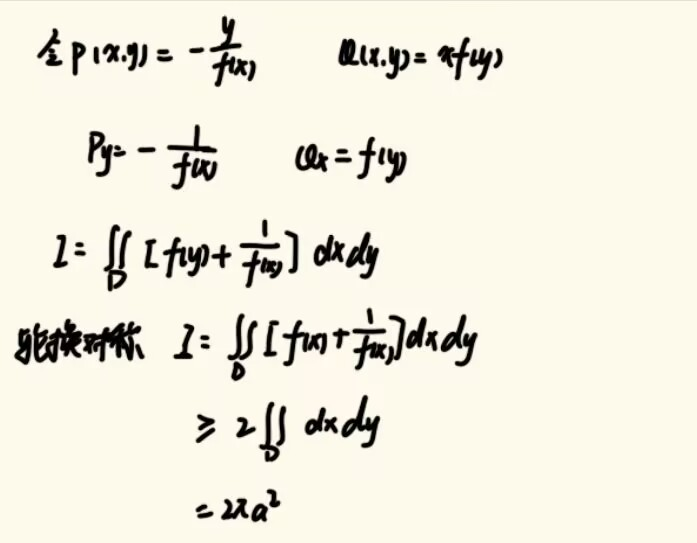 令 P(x,y) = -\frac{y}{f(x)} Q(x,y) = xf(y)
Py = -\frac{1}{f(x)} Qx = f(y)
I = ∬_D [f(y) + \frac{1}{f(x)}] dxdy
轮换对称 I = ∬_D [f(x) + \frac{1}{f(x)}] dxdy
≥ 2∬_D dxdy
= 2πa²